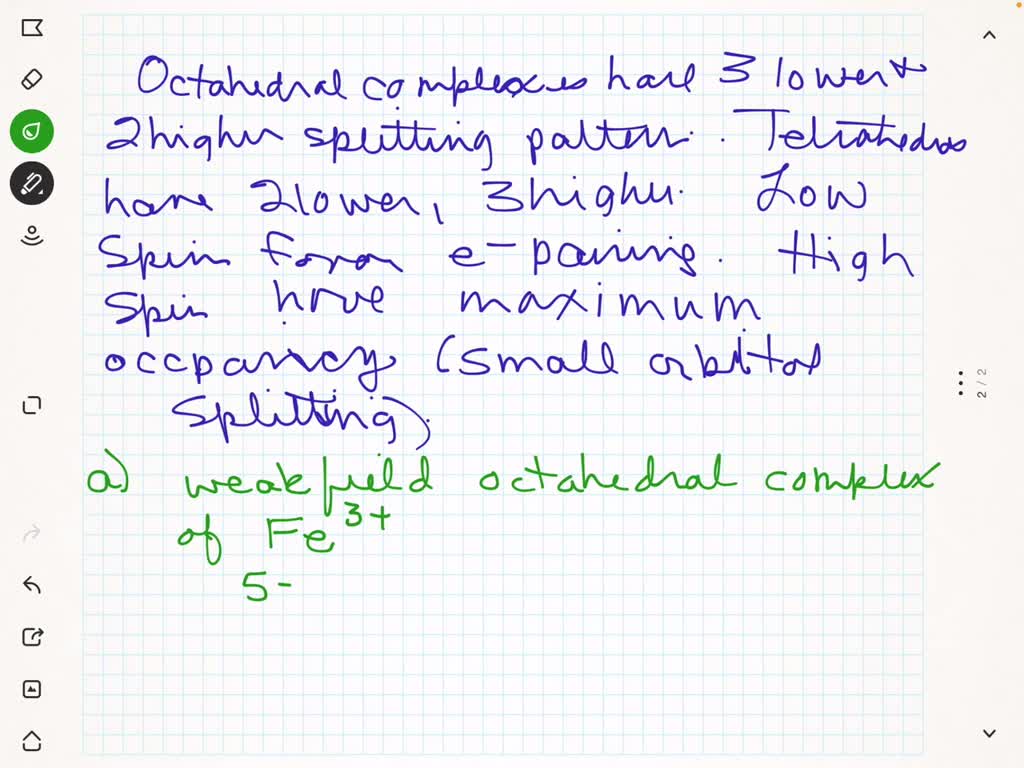 Octahedral complexes have 3 lower +
2 higher splitting pattern. Tetrahedral
have 2 lower, 3 higher. Low
Spin form e⁻ pairing. High
Spin have maximum
occpancy (small orbital
splitting).
a) weak field octahedral complex
of Fe³⁺
5-
2/2